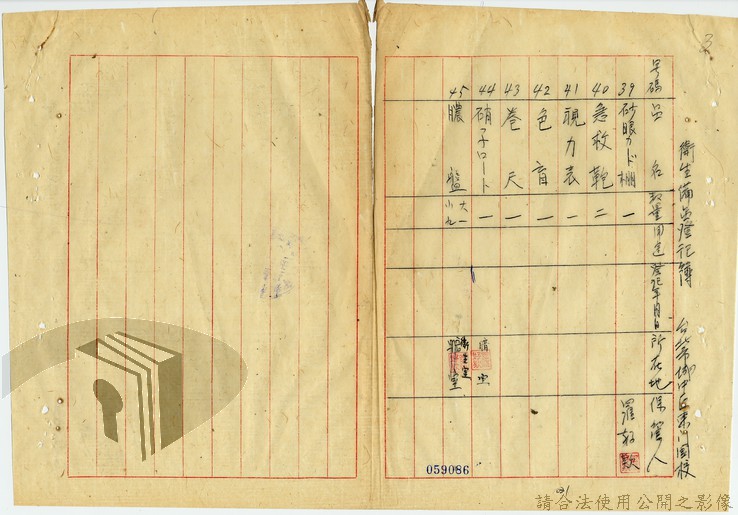 3
衛生備品登記簿 台北市城中區東門國校
号碼 品名 数量 用途 登記年月日 所在地 保管人
39 砂眼カド棚 一 羅
40 急救鞄 二
41 視力表 一
42 色盲 一
43 巻尺 一
44 硝子ロート 一
45 膿盤 大一 小九 衛生室
059086
請合法使用公開之影像